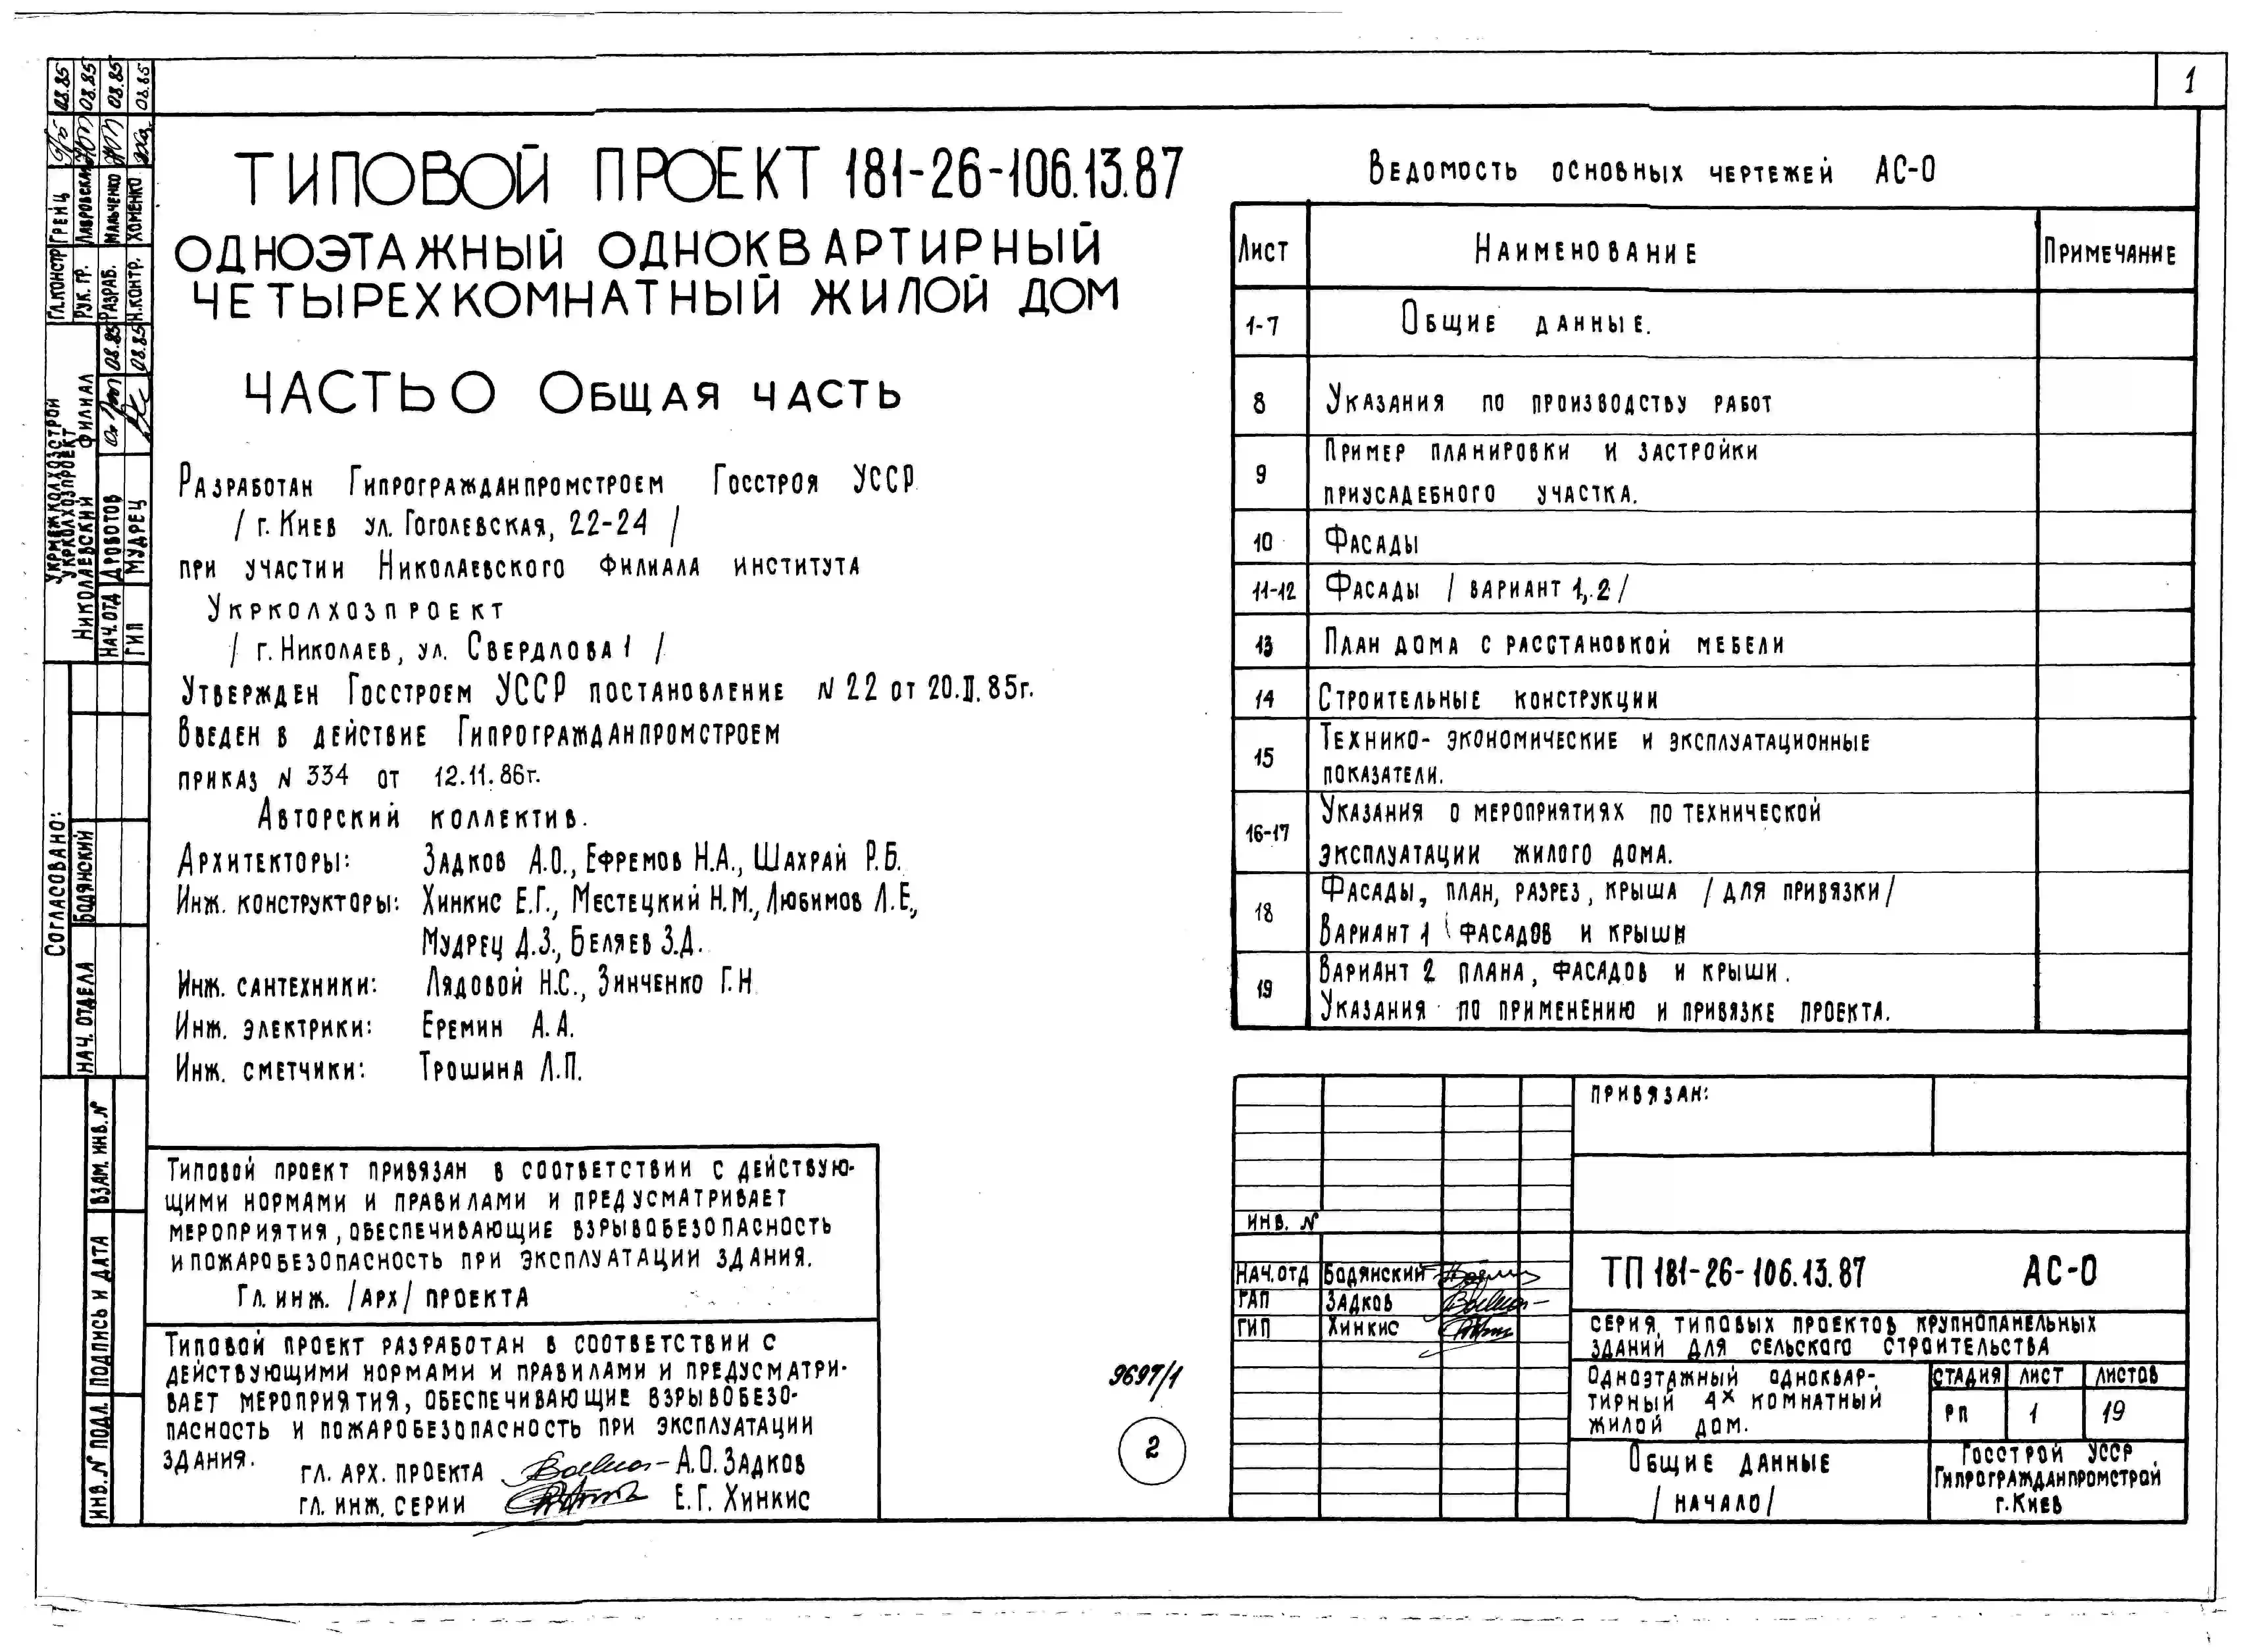 1
ТИПОВОЙ ПРОЕКТ 181-26-106.13.87
ОДНОЭТАЖНЫЙ ОДНОКВАРТИРНЫЙ
ЧЕТЫРЕХКОМНАТНЫЙ ЖИЛОЙ ДОМ
ЧАСТЬ О ОБЩАЯ ЧАСТЬ
РАЗРАБОТАН ГИПРОГРАЖДАНПРОМСТРОЕМ ГОССТРОЯ УССР
/ г. КИЕВ УЛ. ГОГОЛЕВСКАЯ, 22-24 /
ПРИ УЧАСТИИ НИКОЛАЕВСКОГО ФИЛИАЛА ИНСТИТУТА
УКРКОЛХОЗПРОЕКТ
/ г. НИКОЛАЕВ, УЛ. СВЕРДЛОВА 1 /
УТВЕРЖДЕН ГОССТРОЕМ УССР ПОСТАНОВЛЕНИЕ N 22 ОТ 20.II.85г.
ВВЕДЕН В ДЕЙСТВИЕ ГИПРОГРАЖДАНПРОМСТРОЕМ
ПРИКАЗ N 334 ОТ 12.11.86г.
АВТОРСКИЙ КОЛЛЕКТИВ.
АРХИТЕКТОРЫ: ЗАДКОВ А.О., ЕФРЕМОВ Н.А., ШАХРАЙ Р.Б.
ИНЖ. КОНСТРУКТОРЫ: ХИНКИС Е.Г., МЕСТЕЦКИЙ Н.М., ЛЮБИМОВ Л.Е.,
МУДРЕЦ Д.З., БЕЛЯЕВ З.Д.
ИНЖ. САНТЕХНИКИ: ЛЯДОВОЙ Н.С., ЗИНЧЕНКО Г.Н
ИНЖ. ЭЛЕКТРИКИ: ЕРЕМИН А.А.
ИНЖ. СМЕТЧИКИ: ТРОШИНА Л.П.
ТИПОВОЙ ПРОЕКТ ПРИВЯЗАН В СООТВЕТСТВИИ С ДЕЙСТВУЮ-
ЩИМИ НОРМАМИ И ПРАВИЛАМИ И ПРЕДУСМАТРИВАЕТ
МЕРОПРИЯТИЯ, ОБЕСПЕЧИВАЮЩИЕ ВЗРЫВОБЕЗОПАСНОСТЬ
И ПОЖАРОБЕЗОПАСНОСТЬ ПРИ ЭКСПЛУАТАЦИИ ЗДАНИЯ.
ГЛ. ИНЖ. /АРХ/ ПРОЕКТА
ТИПОВОЙ ПРОЕКТ РАЗРАБОТАН В СООТВЕТСТВИИ С
ДЕЙСТВУЮЩИМИ НОРМАМИ И ПРАВИЛАМИ И ПРЕДУСМАТРИ-
ВАЕТ МЕРОПРИЯТИЯ, ОБЕСПЕЧИВАЮЩИЕ ВЗРЫВОБЕЗО-
ПАСНОСТЬ И ПОЖАРОБЕЗОПАСНОСТЬ ПРИ ЭКСПЛУАТАЦИИ
ЗДАНИЯ.
ГЛ. АРХ. ПРОЕКТА А.О. ЗАДКОВ
ГЛ. ИНЖ. СЕРИИ Е.Г. ХИНКИС
9697/1
2
ВЕДОМОСТЬ ОСНОВНЫХ ЧЕРТЕЖЕЙ АС-О
ЛИСТ НАИМЕНОВАНИЕ ПРИМЕЧАНИЕ
1-7 ОБЩИЕ ДАННЫЕ.
8 УКАЗАНИЯ ПО ПРОИЗВОДСТВУ РАБОТ
9 ПРИМЕР ПЛАНИРОВКИ И ЗАСТРОЙКИ
ПРИУСАДЕБНОГО УЧАСТКА.
10 ФАСАДЫ
11-12 ФАСАДЫ / ВАРИАНТ 1,2 /
13 ПЛАН ДОМА С РАССТАНОВКОЙ МЕБЕЛИ
14 СТРОИТЕЛЬНЫЕ КОНСТРУКЦИИ
15 ТЕХНИКО-ЭКОНОМИЧЕСКИЕ И ЭКСПЛУАТАЦИОННЫЕ
ПОКАЗАТЕЛИ.
16-17 УКАЗАНИЯ О МЕРОПРИЯТИЯХ ПО ТЕХНИЧЕСКОЙ
ЭКСПЛУАТАЦИИ ЖИЛОГО ДОМА.
18 ФАСАДЫ, ПЛАН, РАЗРЕЗ, КРЫША / ДЛЯ ПРИВЯЗКИ/
ВАРИАНТ 1 ФАСАДОВ И КРЫШИ
19 ВАРИАНТ 2 ПЛАНА, ФАСАДОВ И КРЫШИ.
УКАЗАНИЯ ПО ПРИМЕНЕНИЮ И ПРИВЯЗКЕ ПРОЕКТА.
ПРИВЯЗАН:
ИНВ. N
НАЧ. ОТД БОДЯНСКИЙ
ГАП ЗАДКОВ
ГИП ХИНКИС
ТП 181-26-106.13.87 АС-О
СЕРИЯ, ТИПОВЫХ ПРОЕКТОВ КРУПНОПАНЕЛЬНЫХ
ЗДАНИЙ ДЛЯ СЕЛЬСКОГО СТРОИТЕЛЬСТВА
ОДНОЭТАЖНЫЙ ОДНОКВАР-
ТИРНЫЙ 4Х КОМНАТНЫЙ
ЖИЛОЙ ДОМ.
СТАДИЯ ЛИСТ ЛИСТОВ
РП 1 19
ОБЩИЕ ДАННЫЕ
/ НАЧАЛО/
ГОССТРОЙ УССР
ГИПРОГРАЖДАНПРОМСТРОЙ
г. КИЕВ
ГЛ.КОНСТР ГРЕЙЦ 08.85
РУК. ГР. ЛАВРОВСКАЯ 08.85
РАЗРАБ. МАЛЬЧЕНКО 08.85
Н.КОНТР. ХОМЕНКО 08.85
УКРМЕЖКОЛХОЗСТРОЙ
УКРКОЛХОЗПРОЕКТ
НИКОЛАЕВСКИЙ ФИЛИАЛ
НАЧ. ОТД ДРОБОТОВ 08.85
ГИП МУДРЕЦ 08.85
СОГЛАСОВАНО:
НАЧ. ОТДЕЛА БОДЯНСКИЙ
ВЗАМ. ИНВ. N
ПОДПИСЬ И ДАТА
ИНВ. N ПОДЛ.